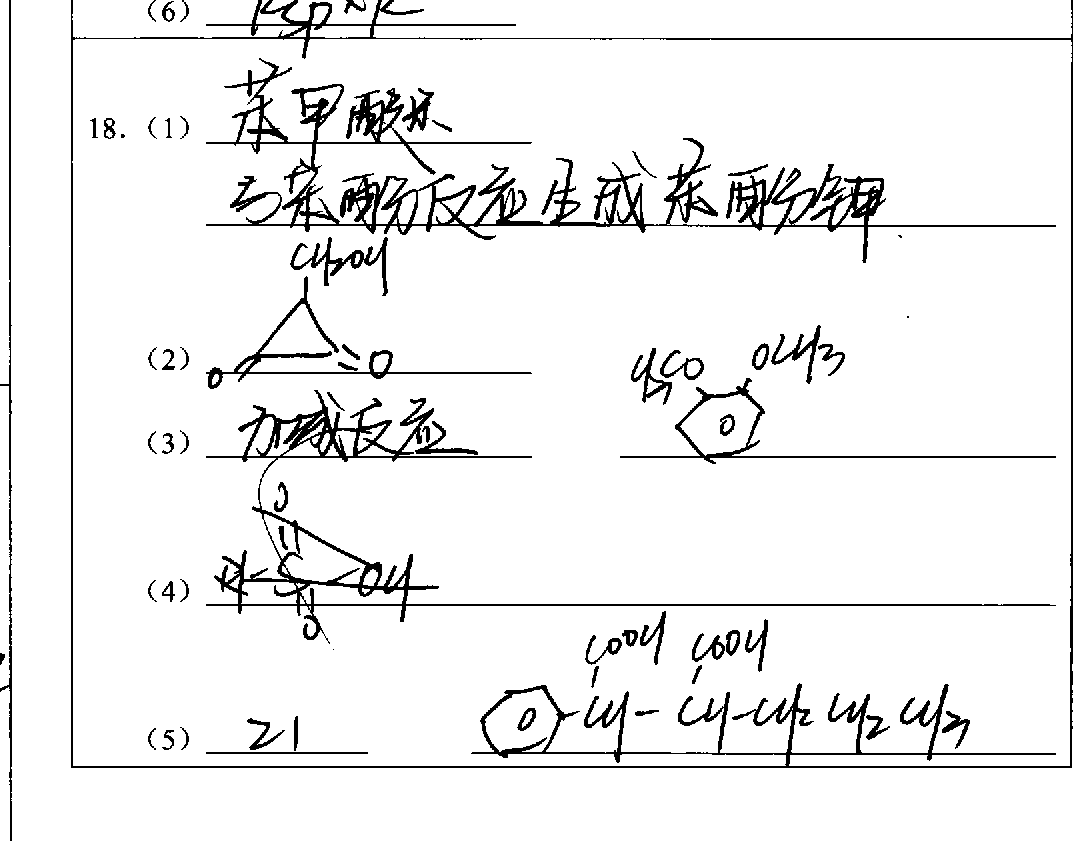 (6) Ksp
18.(1) 苯甲酸
与苯酚反应生成苯酚钾
CH2OH
(2) O O
H3CO OCH3
(3) 加成反应
O
(4) OH
O
COOH COOH
(5) 21 CH-CH-CH2CH2CH3